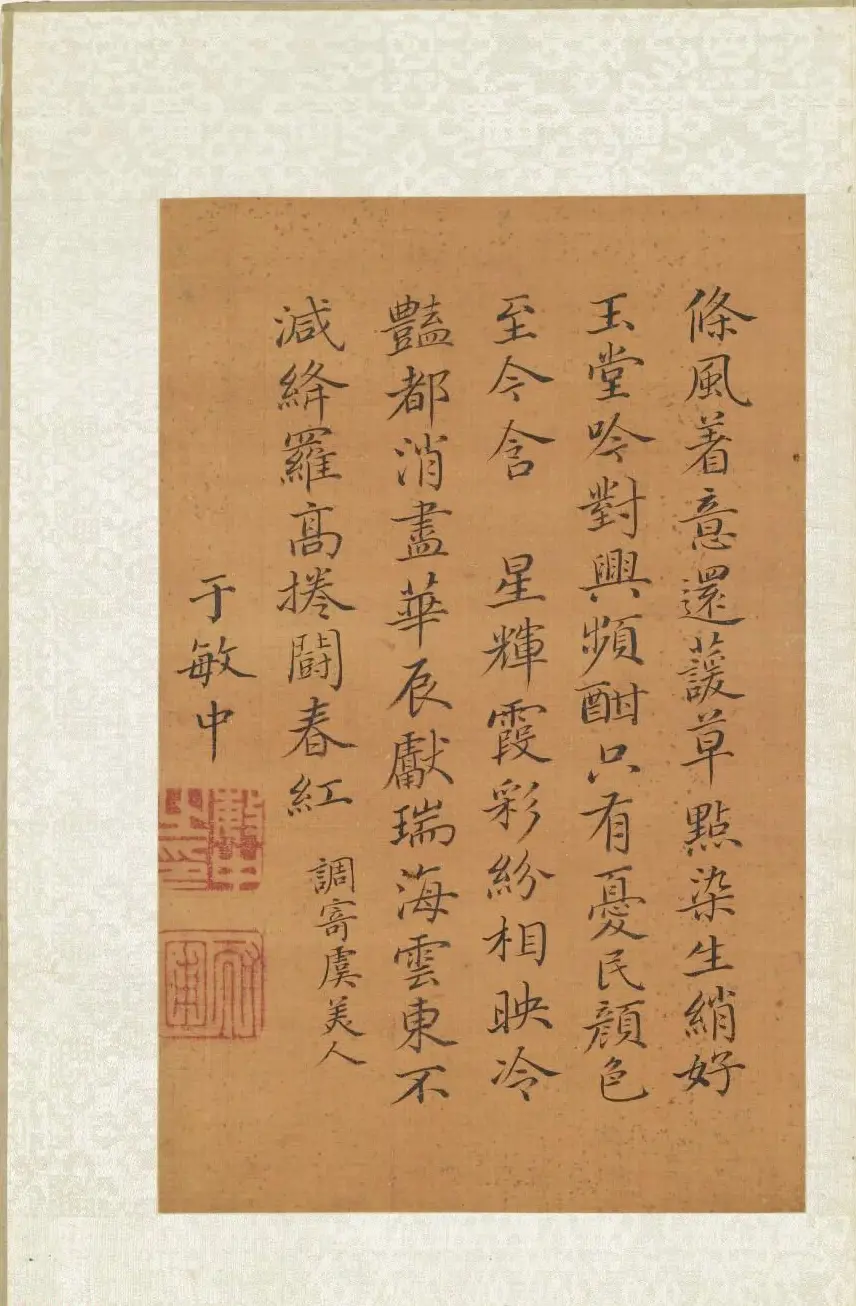 條風著意還蘐草點染生綃好
玉堂吟對興頻酣只有憂民顏色
至今含　星輝霞彩紛相映冷
豔都消盡華辰獻瑞海雲東不
減絳羅高捲鬪春紅
調寄虞美人
于敏中